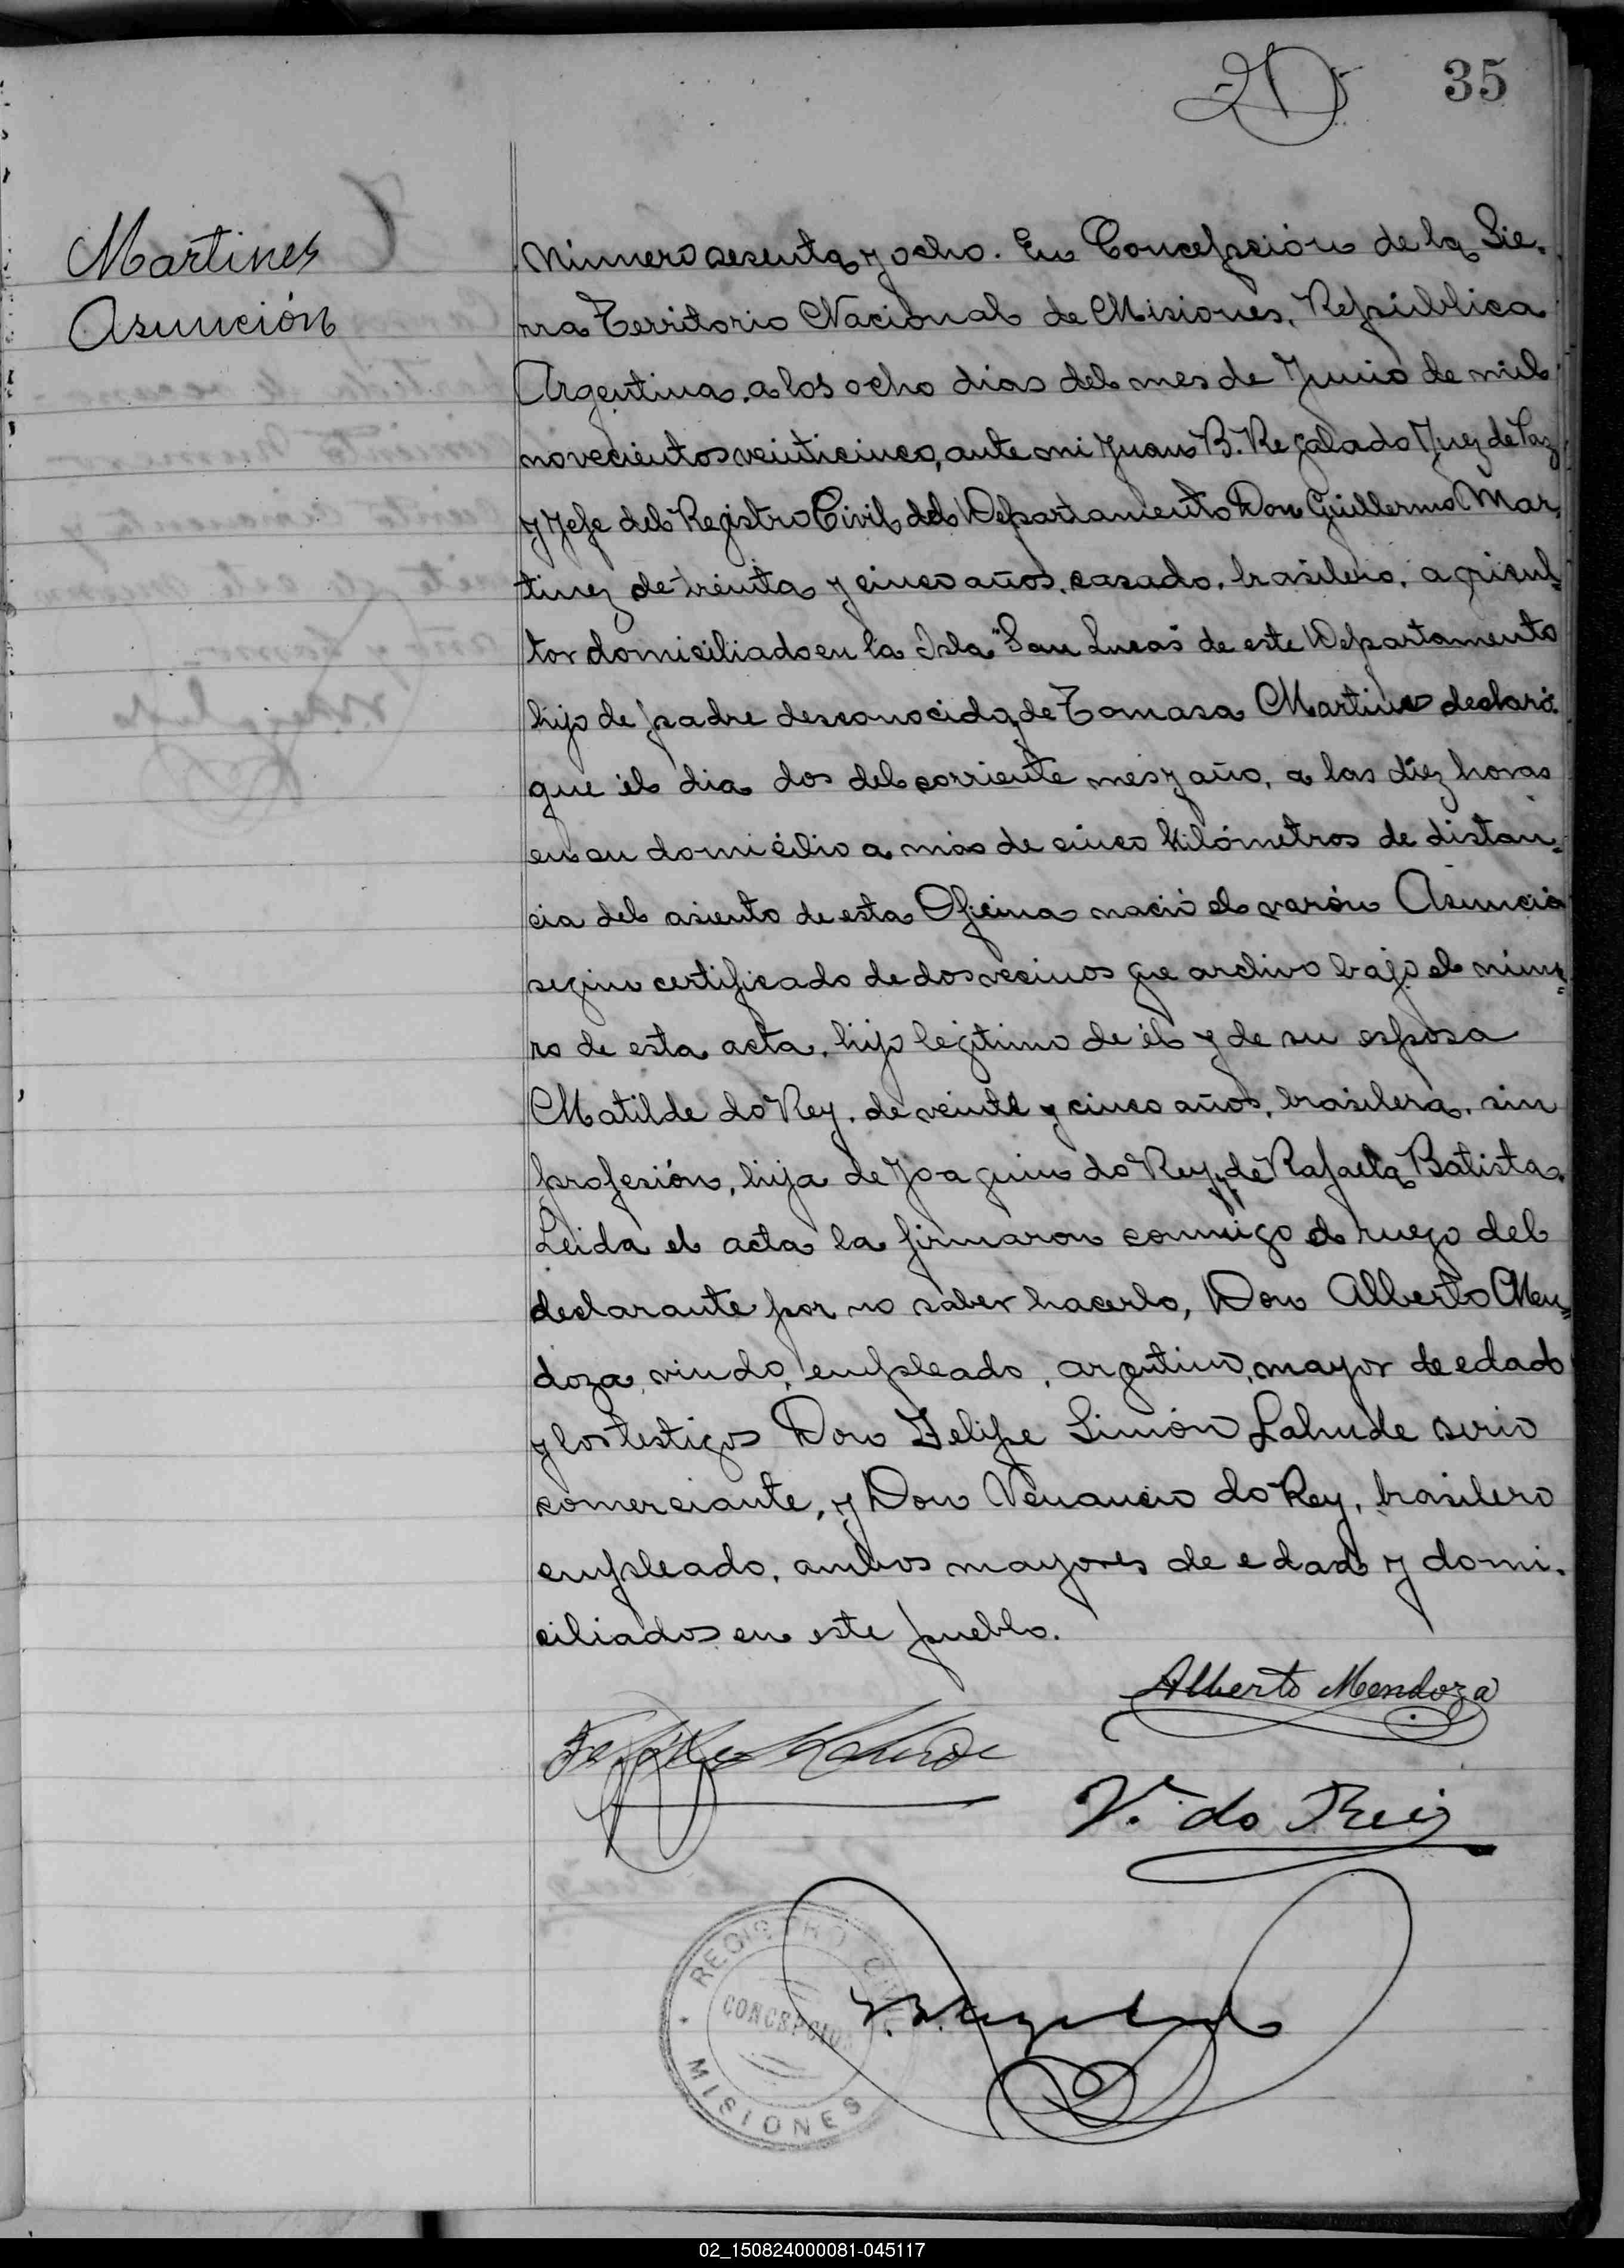 35
Martines
Asunción
Número sesenta y ocho. En Concepción de la Sie-
rra Territorio Nacional de Misiones, República
Argentina, a los ocho dias del mes de Junio de mil
novecientos veinticinco, ante mi Juan B. Regalado Juez de Paz
y Jefe del Registro Civil del Departamento Don Guillermo Mar-
tinez de treinta y cinco años, casado, brasilero, agricul-
tor domiciliado en la Isla "San Lucas" de este Departamento
hijo de padre desconocido, de Tomasa Martines declaró:
que el dia dos del corriente mes y año, a las diez horas
en su domicilio a más de cinco kilómetros de distan-
cia del asiento de esta Oficina nació el varón Asunción
según certificado de dos vecinos que archivo bajo el núme-
ro de esta acta, hijo legitimo de él y de su esposa
Matilde do Rey, de veinte y cinco años, brasilera, sin
profesión, hija de Joaquin do Rey y de Rafaela Batista.
Leida el acta la firmaron conmigo a ruego del
declarante por no saber hacerlo, Don Alberto Men-
doza, viudo, empleado, argentino, mayor de edad
y los testigos Don Felipe Simón Lahude sirio
comerciante, y Don Venancio do Rey, brasilero
empleado, ambos mayores de edad y domi-
ciliados en este pueblo.
Alberto Mendoza
Felipe S Lahude
V. do Reis
J.B. Regalado
REGISTRO CIVIL
CONCEPCION
MISIONES
02_150824000081-045117